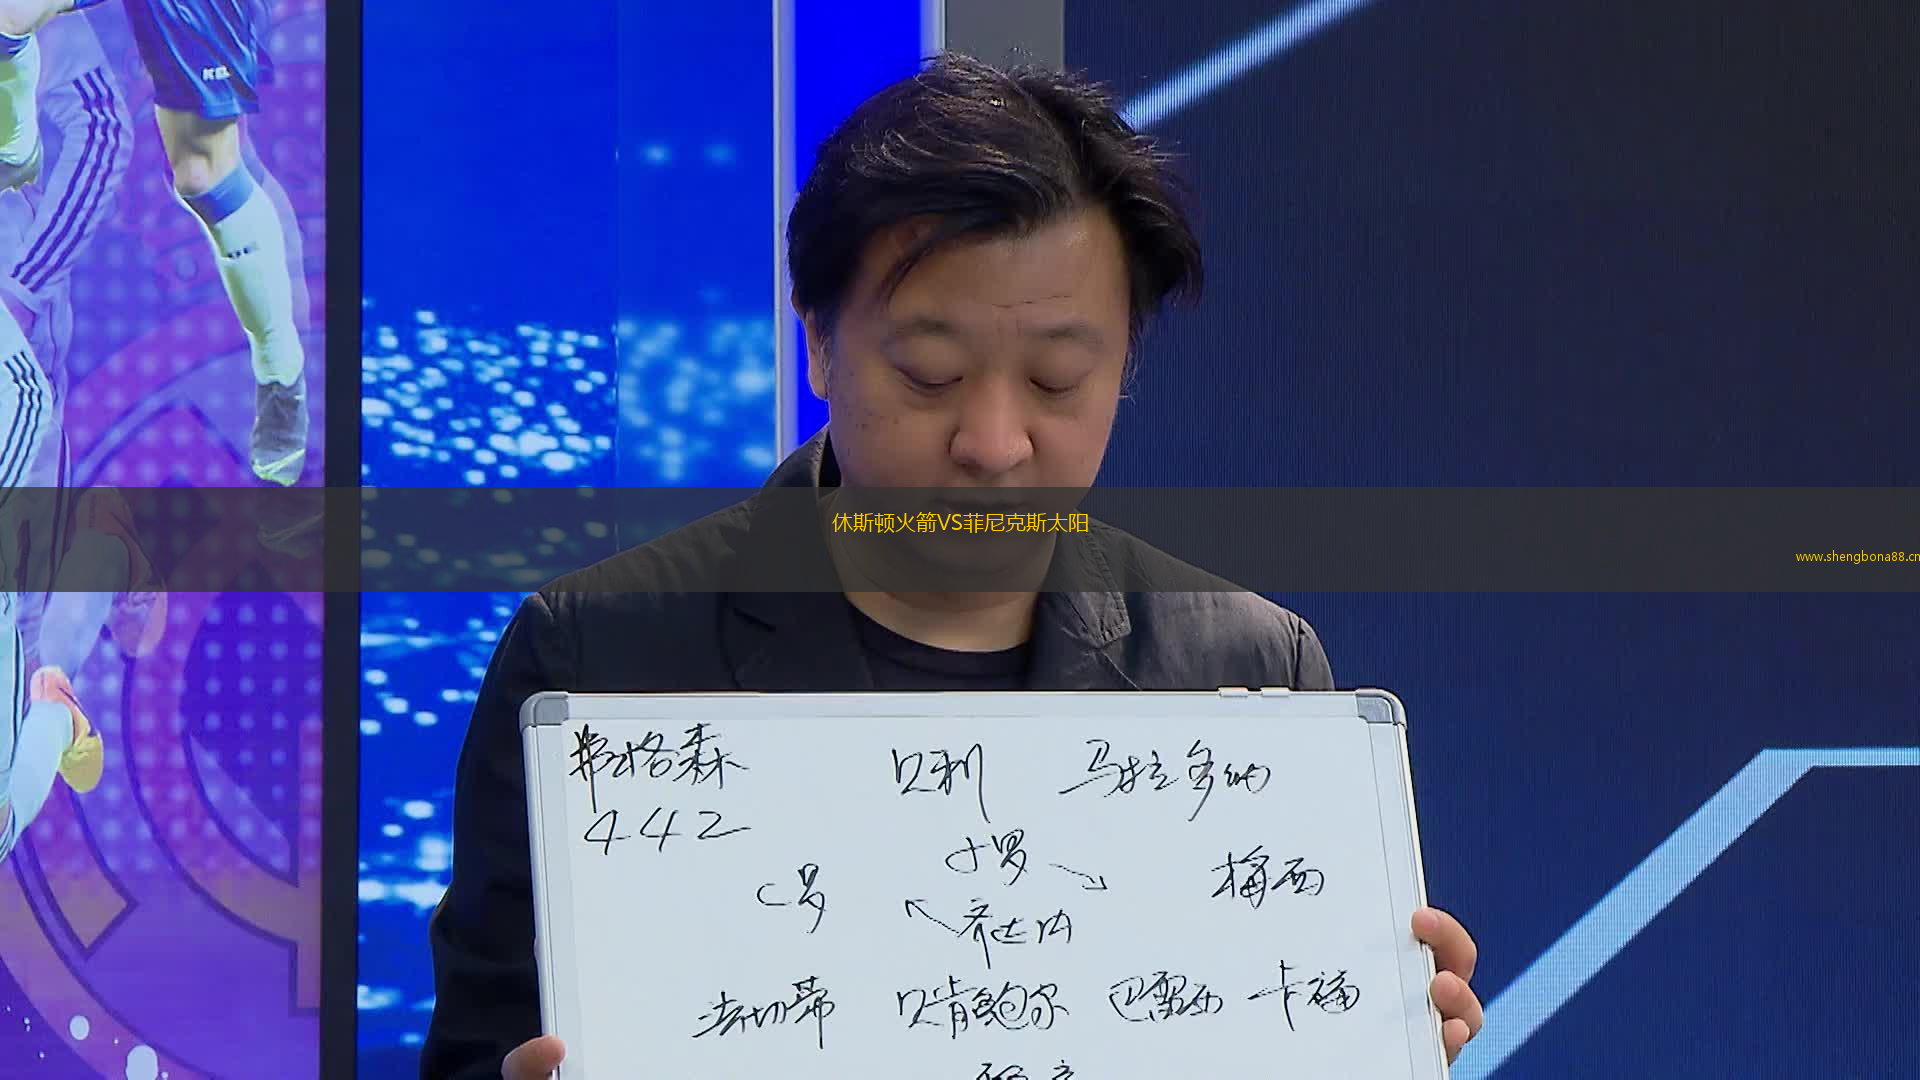 休斯顿火箭VS菲尼克斯太阳
www.shengbona88.cn
弗格森 贝利 马拉多纳
442
小罗
C罗 梅西
齐达内
法切蒂 贝肯鲍尔 巴雷西 卡福